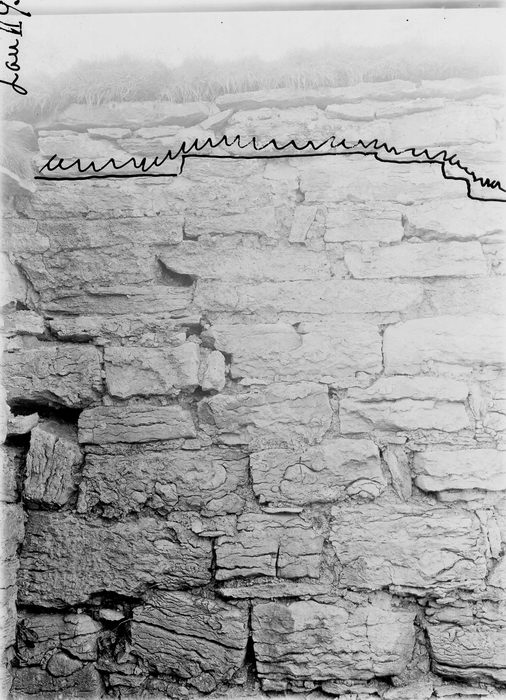 Lau II 9.